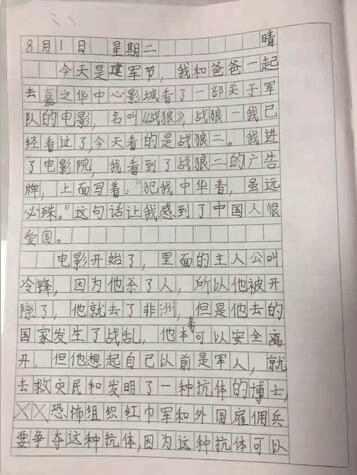 8月1日 星期二 晴
今天是建军节，我和爸爸一起
去嘉之华中心影城看了一部关于军
队的电影，名叫《战狼》，战狼一我已
经看过了今天看的是战狼二。我进
了电影院，我看到了战狼二的广告
牌，上面写着："犯我中华者，虽远
必殊。"这句话让我感到了中国人很
爱国。
电影开始了，里面的主人公叫
冷锋，因为他杀了人，所以他被开
除了，他就去了非洲，但是他去的
国家发生了战乱，他本可以安全离
开。但他想起自己以前是军人，就
去救灾民和发明了一种抗体的博士，
恐怖组织红巾军和外国雇佣兵
要争夺这种抗体，因为这种抗体可以